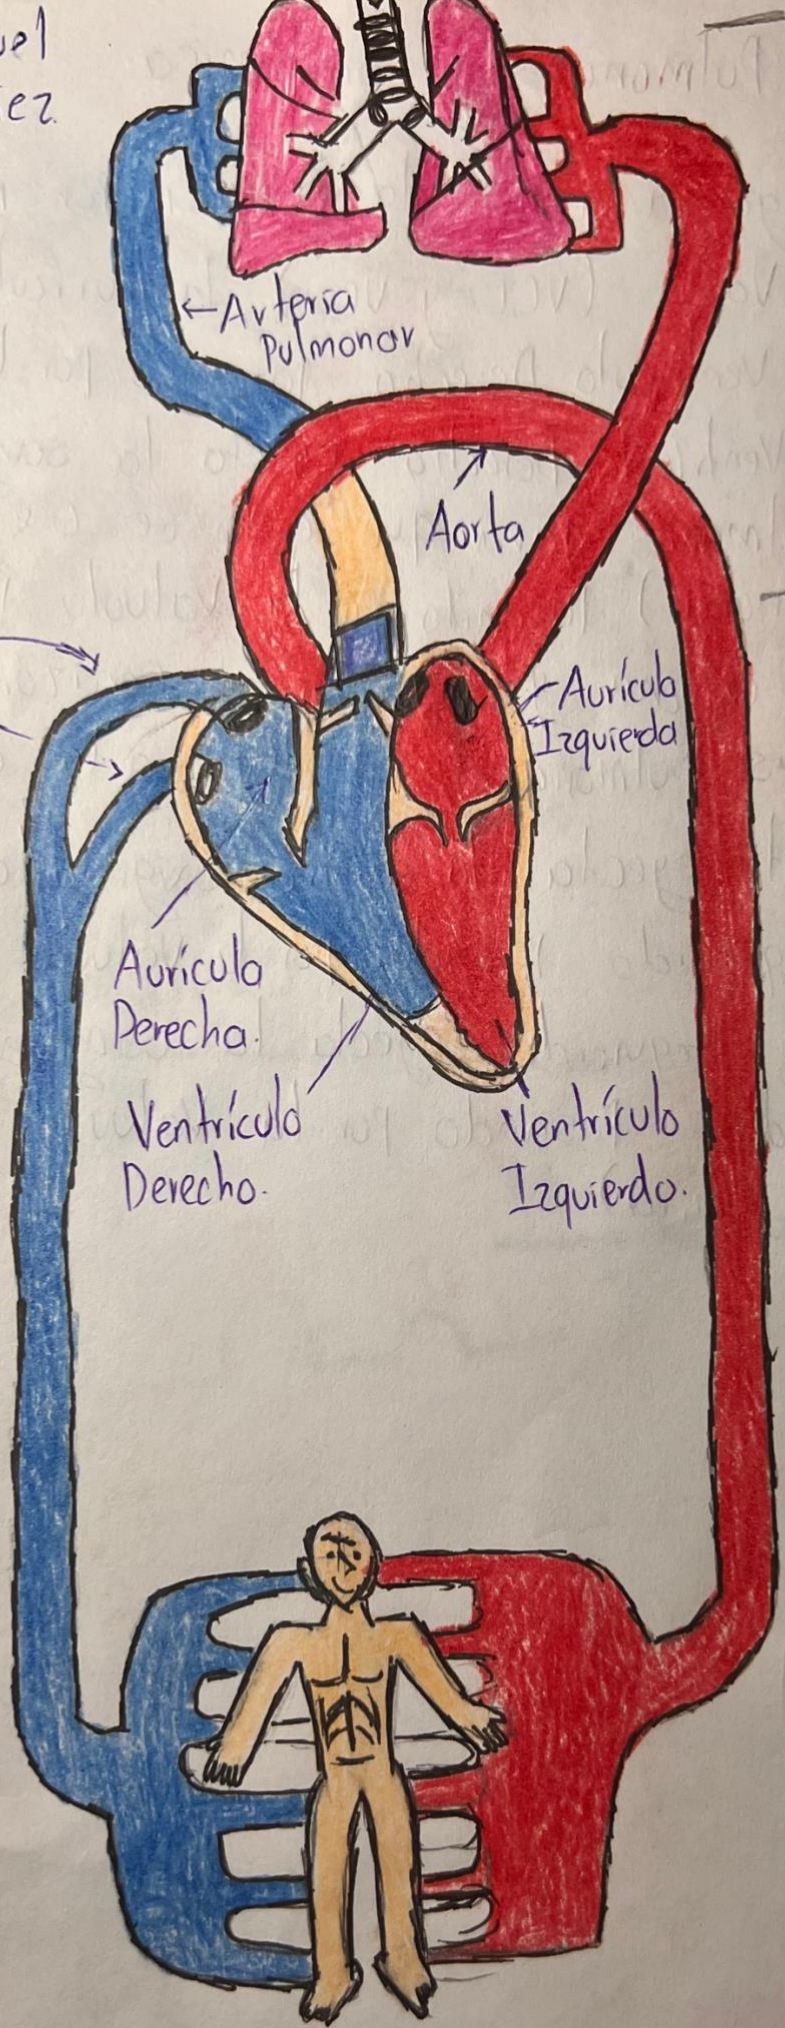 ←Arteria
Pulmonar
Aorta
Aurículo
Izquierda
Aurículo
Derecha.
Ventrículo
Derecho.
Ventrículo
Izquierdo.